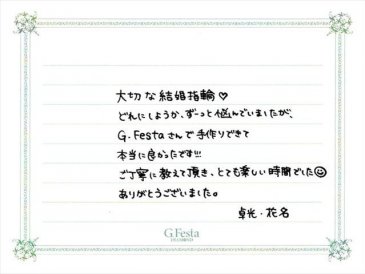 大切な結婚指輪♡
どれにしようか、ずーっと悩んでいましたが、
G.Festaさんで手作りできて
本当に良かったです!!!
ご丁寧に教えて頂き、とても楽しい時間でした☺
ありがとうございました。
卓光・花名
G.Festa
DIAMOND